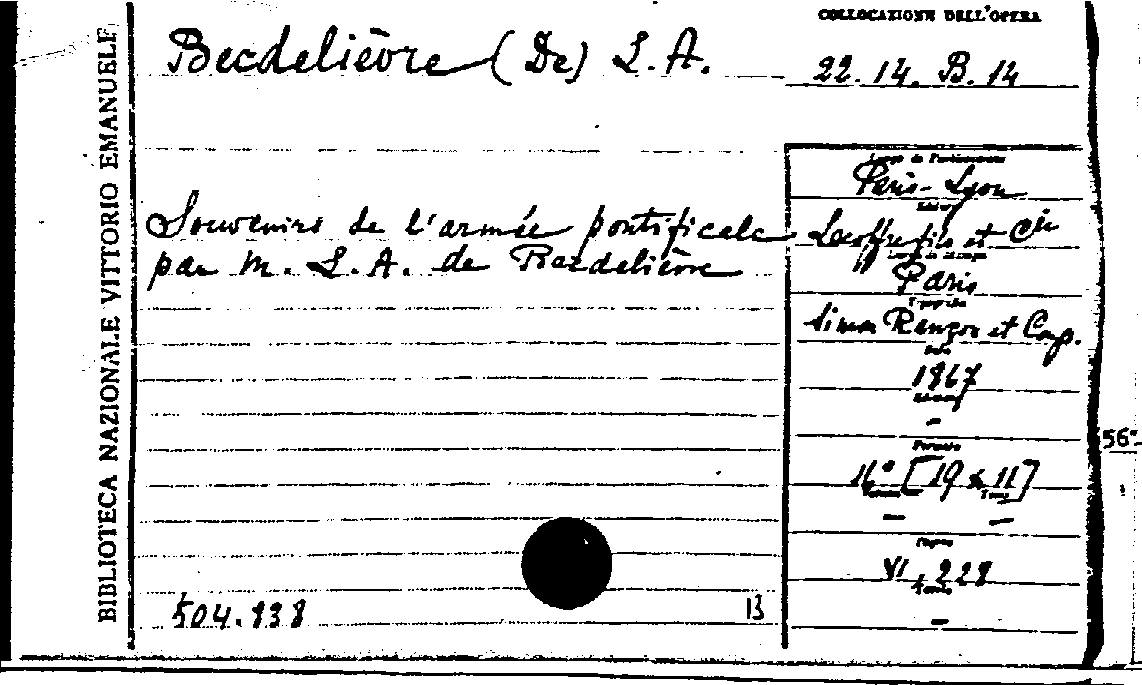 BIBLIOTECA NAZIONALE VITTORIO EMANUELE
COLLOCAZIONE DELL'OPERA
Becdelièvre (De) L. A.
22. 14. B. 14
Luogo di Pubblicazione
Paris - Lyon
Editore
Souvenirs de l'armée pontificale
Lecoffre fils et Cie
par M. L. A. de Becdelièvre
Luogo di Stampa
Paris
Tipografia
Simon Rançon et Comp.
Data
1867
Edizione
–
Formato
16° [19 x 11]
Volume
Tomo
– –
Pagine
VI, 228
Tavole
–
504.838
13
56